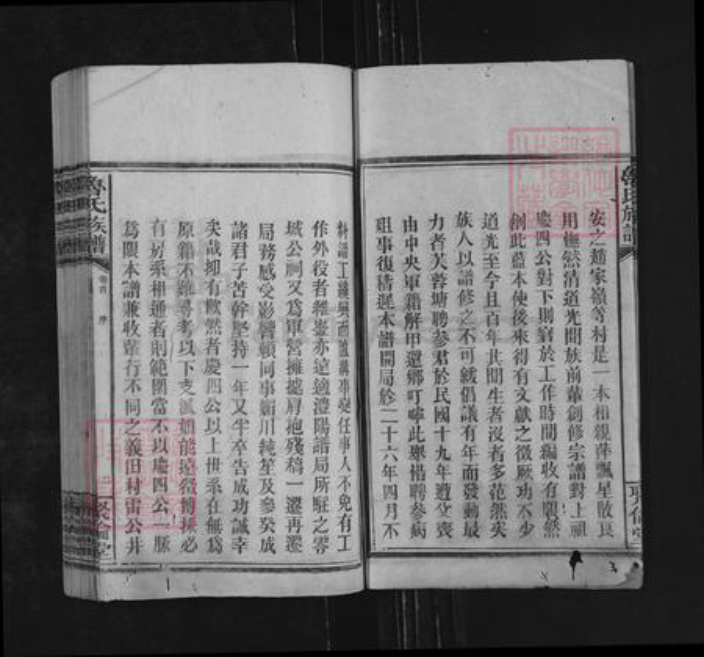 魯氏族譜
安之趙家嶺等村是一本相親萍飄星散良
用慨然清道光間族前輩創修宗譜對上祖
慶四公對下則窘於工作時間編收有限然
創此藍本使後來得有文獻之徵厥功不少
道光至今且百年其間生者沒者多茫然矣
族人以譜修之不可緩倡議有年而發動最
力者芙蓉塘聘參君於民國十九年遭父喪
由中央軍籍解甲還鄉叮嚀此舉惜聘參病
殂事復稽遲本譜開局於二十六年四月不
料譜工緩興而蘆溝事變任事人不免有工
作外役者雖壑亦達適澧陽譜局所駐之零
城公祠又為軍營擁據肩袍殘稿一遷再遷
局務感受影響顧同事霸川純笙及參癸成
諸君子苦幹堅持一年又半卒告成功誠幸
矣哉抑有歉然者慶四公以上世系在無為
原籍不難尋考以下支派如能遠徵博採必
有房系相通者則範圍當不以慶四公一脈
為限本譜兼收輩行不同之義田村雷公井
魯氏族譜
卷首 序
二
聚倫堂